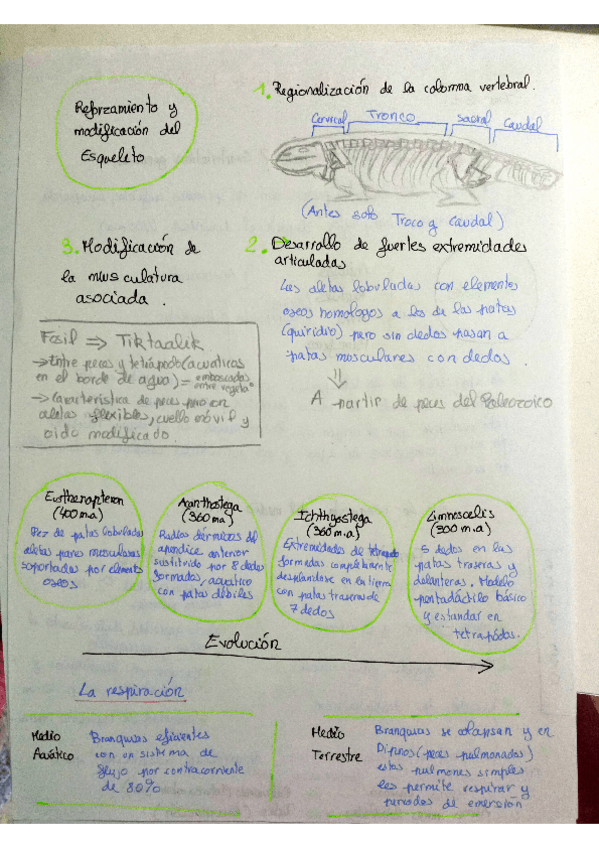 Reforzamiento y
modificación del
Esqueleto
1. Regionalización de la columna vertebral.
Cervical Tronco sacral caudal
(Antes solo Troco y caudal)
3. Modificación de
la musculatura
asociada.
2. Desarrollo de fuertes extremidades
articuladas
Las aletas lobuladas con elementos
oseos homologos a los de las patas
(quiridio) pero sin dedos pasan a
patas musculares con dedos.
⇓
A partir de peces del Paleozoico
Fósil ⇒ Tiktaalik
→Entre peces y tetrápodo (acuaticos
en el borde de agua) = emboscadas
entre vegetaⁿ
→ Característica de peces pero con
aletas flexibles, cuello móvil y
oido modificado.
Eusthenopteron
(400 m.a)
Pez de patas lobuladas
aletas pares musculosas
soportadas por elementos
oseos
Acanthostega
(360 m.a)
Radios dérmicos del
apendice anterior
sustituido por 8 dedos
formados, acuatico
con patas débiles
Ichthyostega
(360 m.a)
Extremidades de tetrapodo
formadas completamente
desplandose en la tierra
con patas traseras de
7 dedos
Limnoscelis
(300 m.a)
5 dedos en las
patas traseras y
delanteras. Modelo
pentadáctilo básico
y estandar en
tetrapódos.
Evolución
La respiración
Medio
Acuático
Branquias eficientes
con un sistema de
flujo por contracorriente
de 80%
Medio
Terrestre
Branquias se colapsan y en
Dipnos (peces pulmonados)
estos pulmones simples
les permite respirar y
periodos de emersión